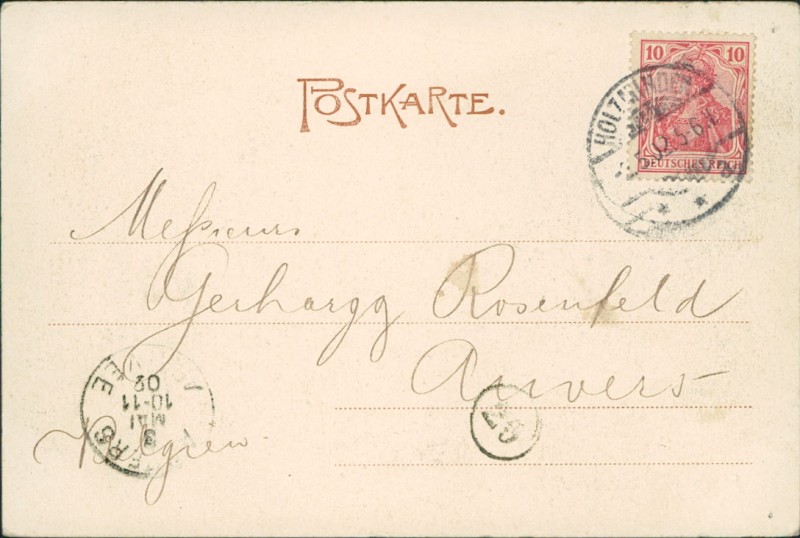 POSTKARTE.
10 10
DEUTSCHES REICH
Messieurs
Gerhargg Rosenfeld
Anvers
Belgien
MAI
10-11
02